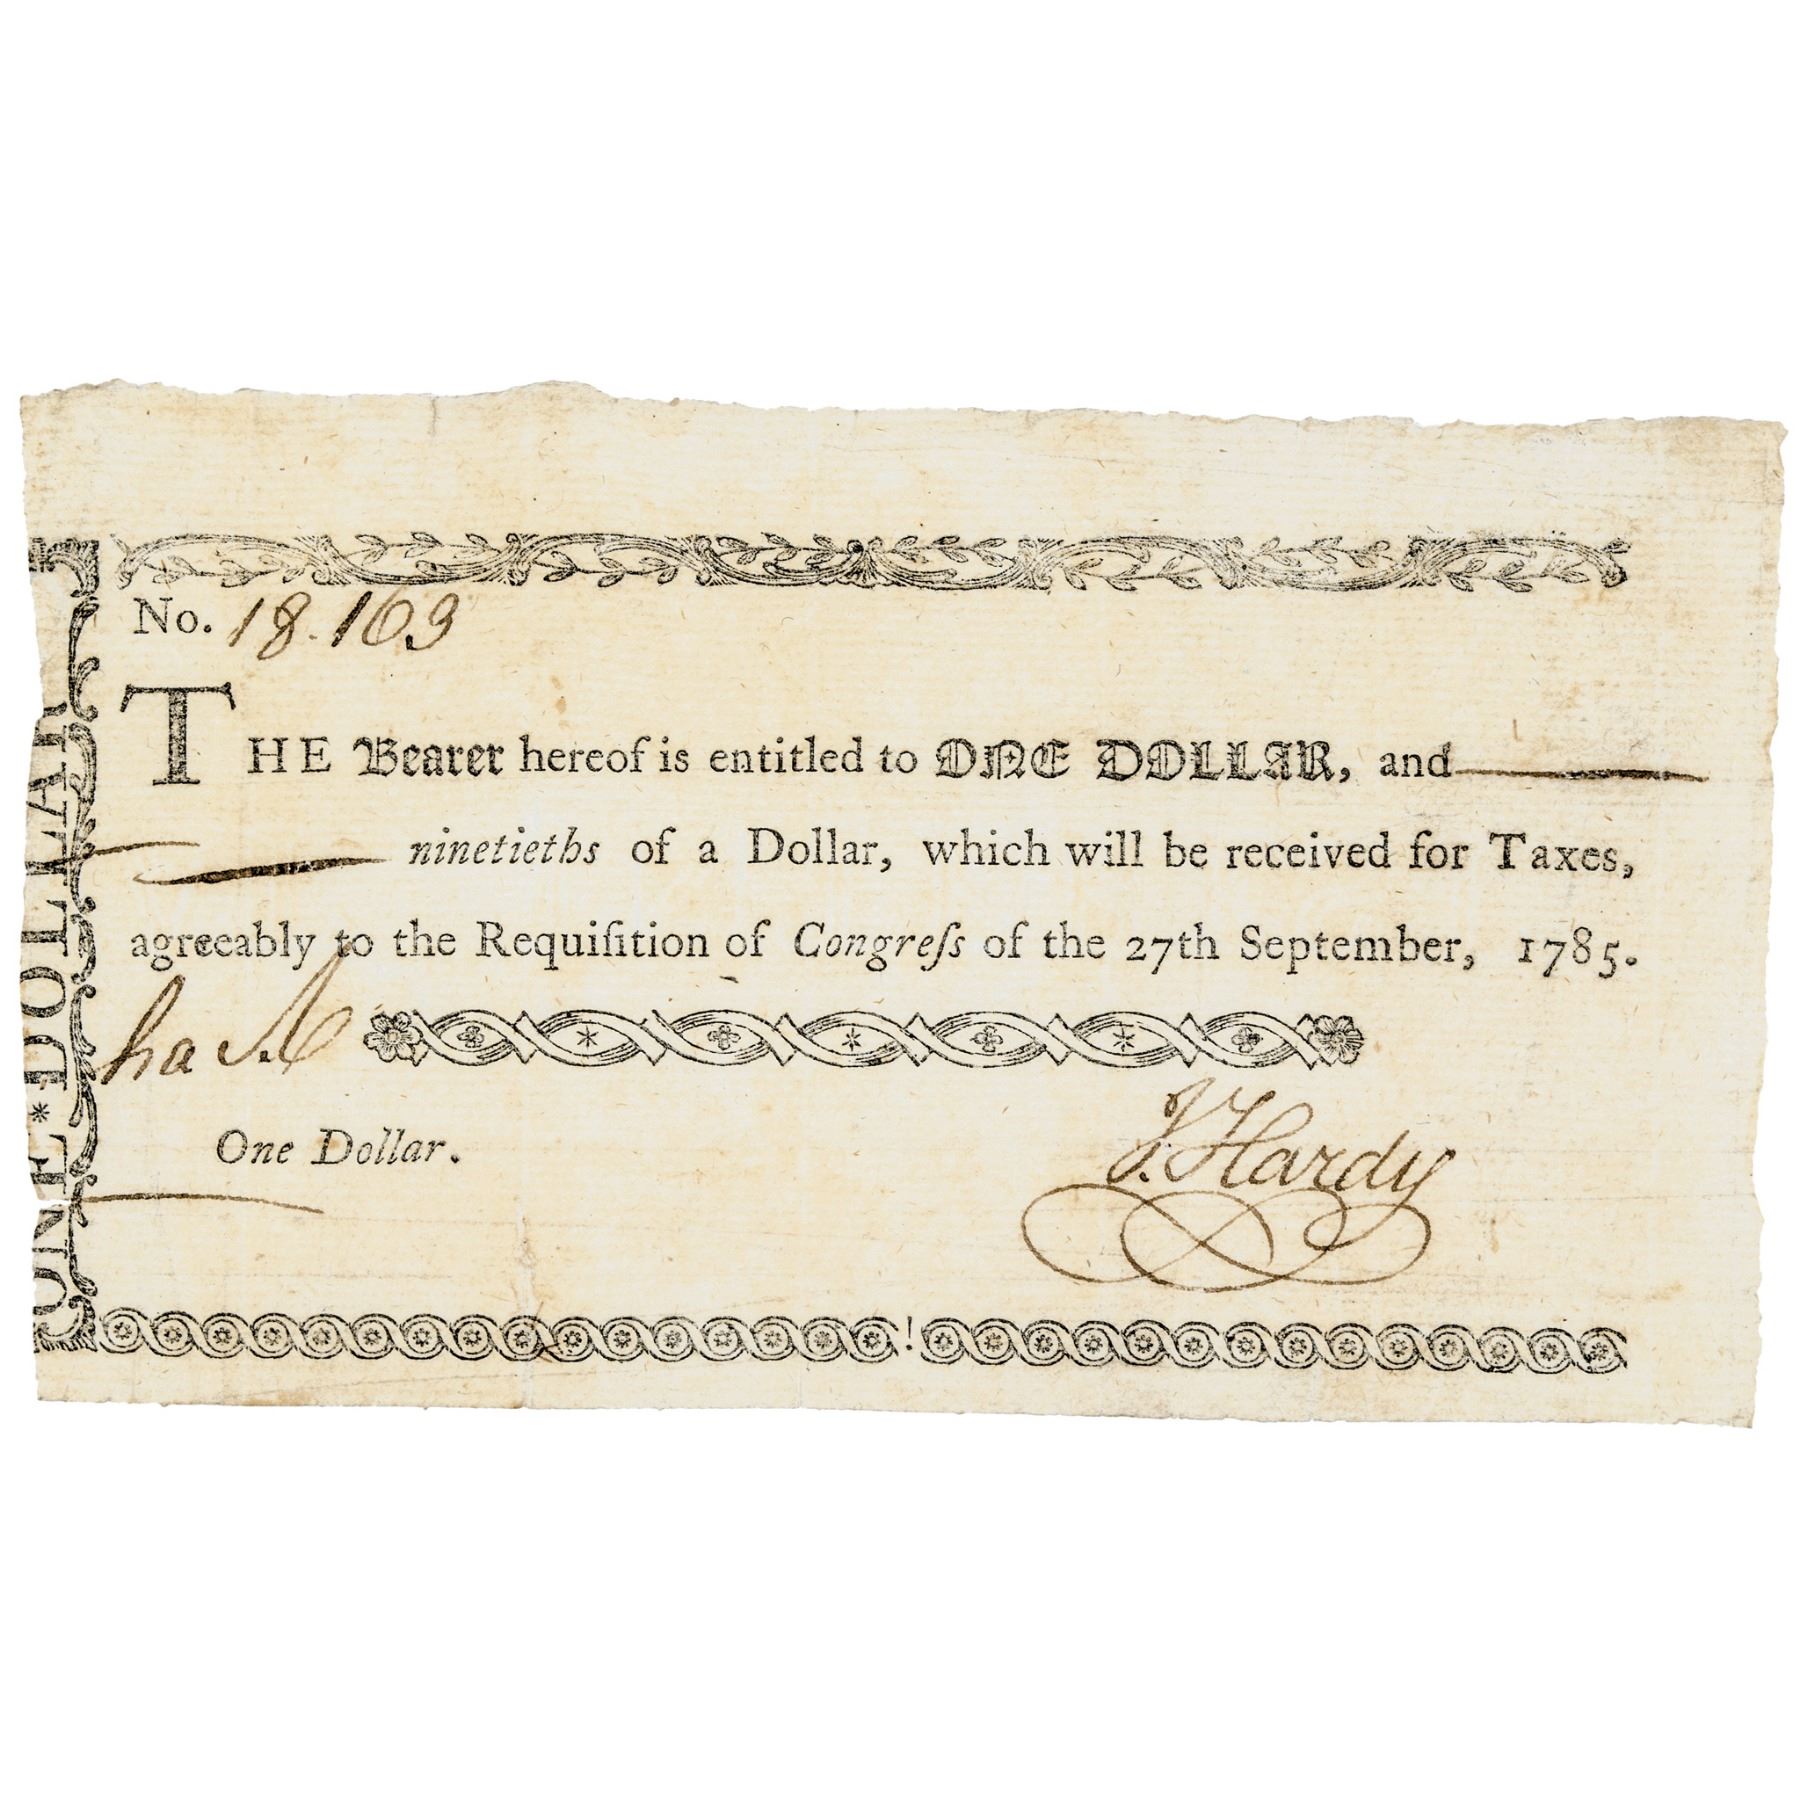 ONE * DOLLAR
No. 18.163
THE Bearer hereof is entitled to ONE DOLLAR, and
ninetieths of a Dollar, which will be received for Taxes,
agreeably to the Requiſition of Congreſs of the 27th September, 1785.
One Dollar.
J. Hardy